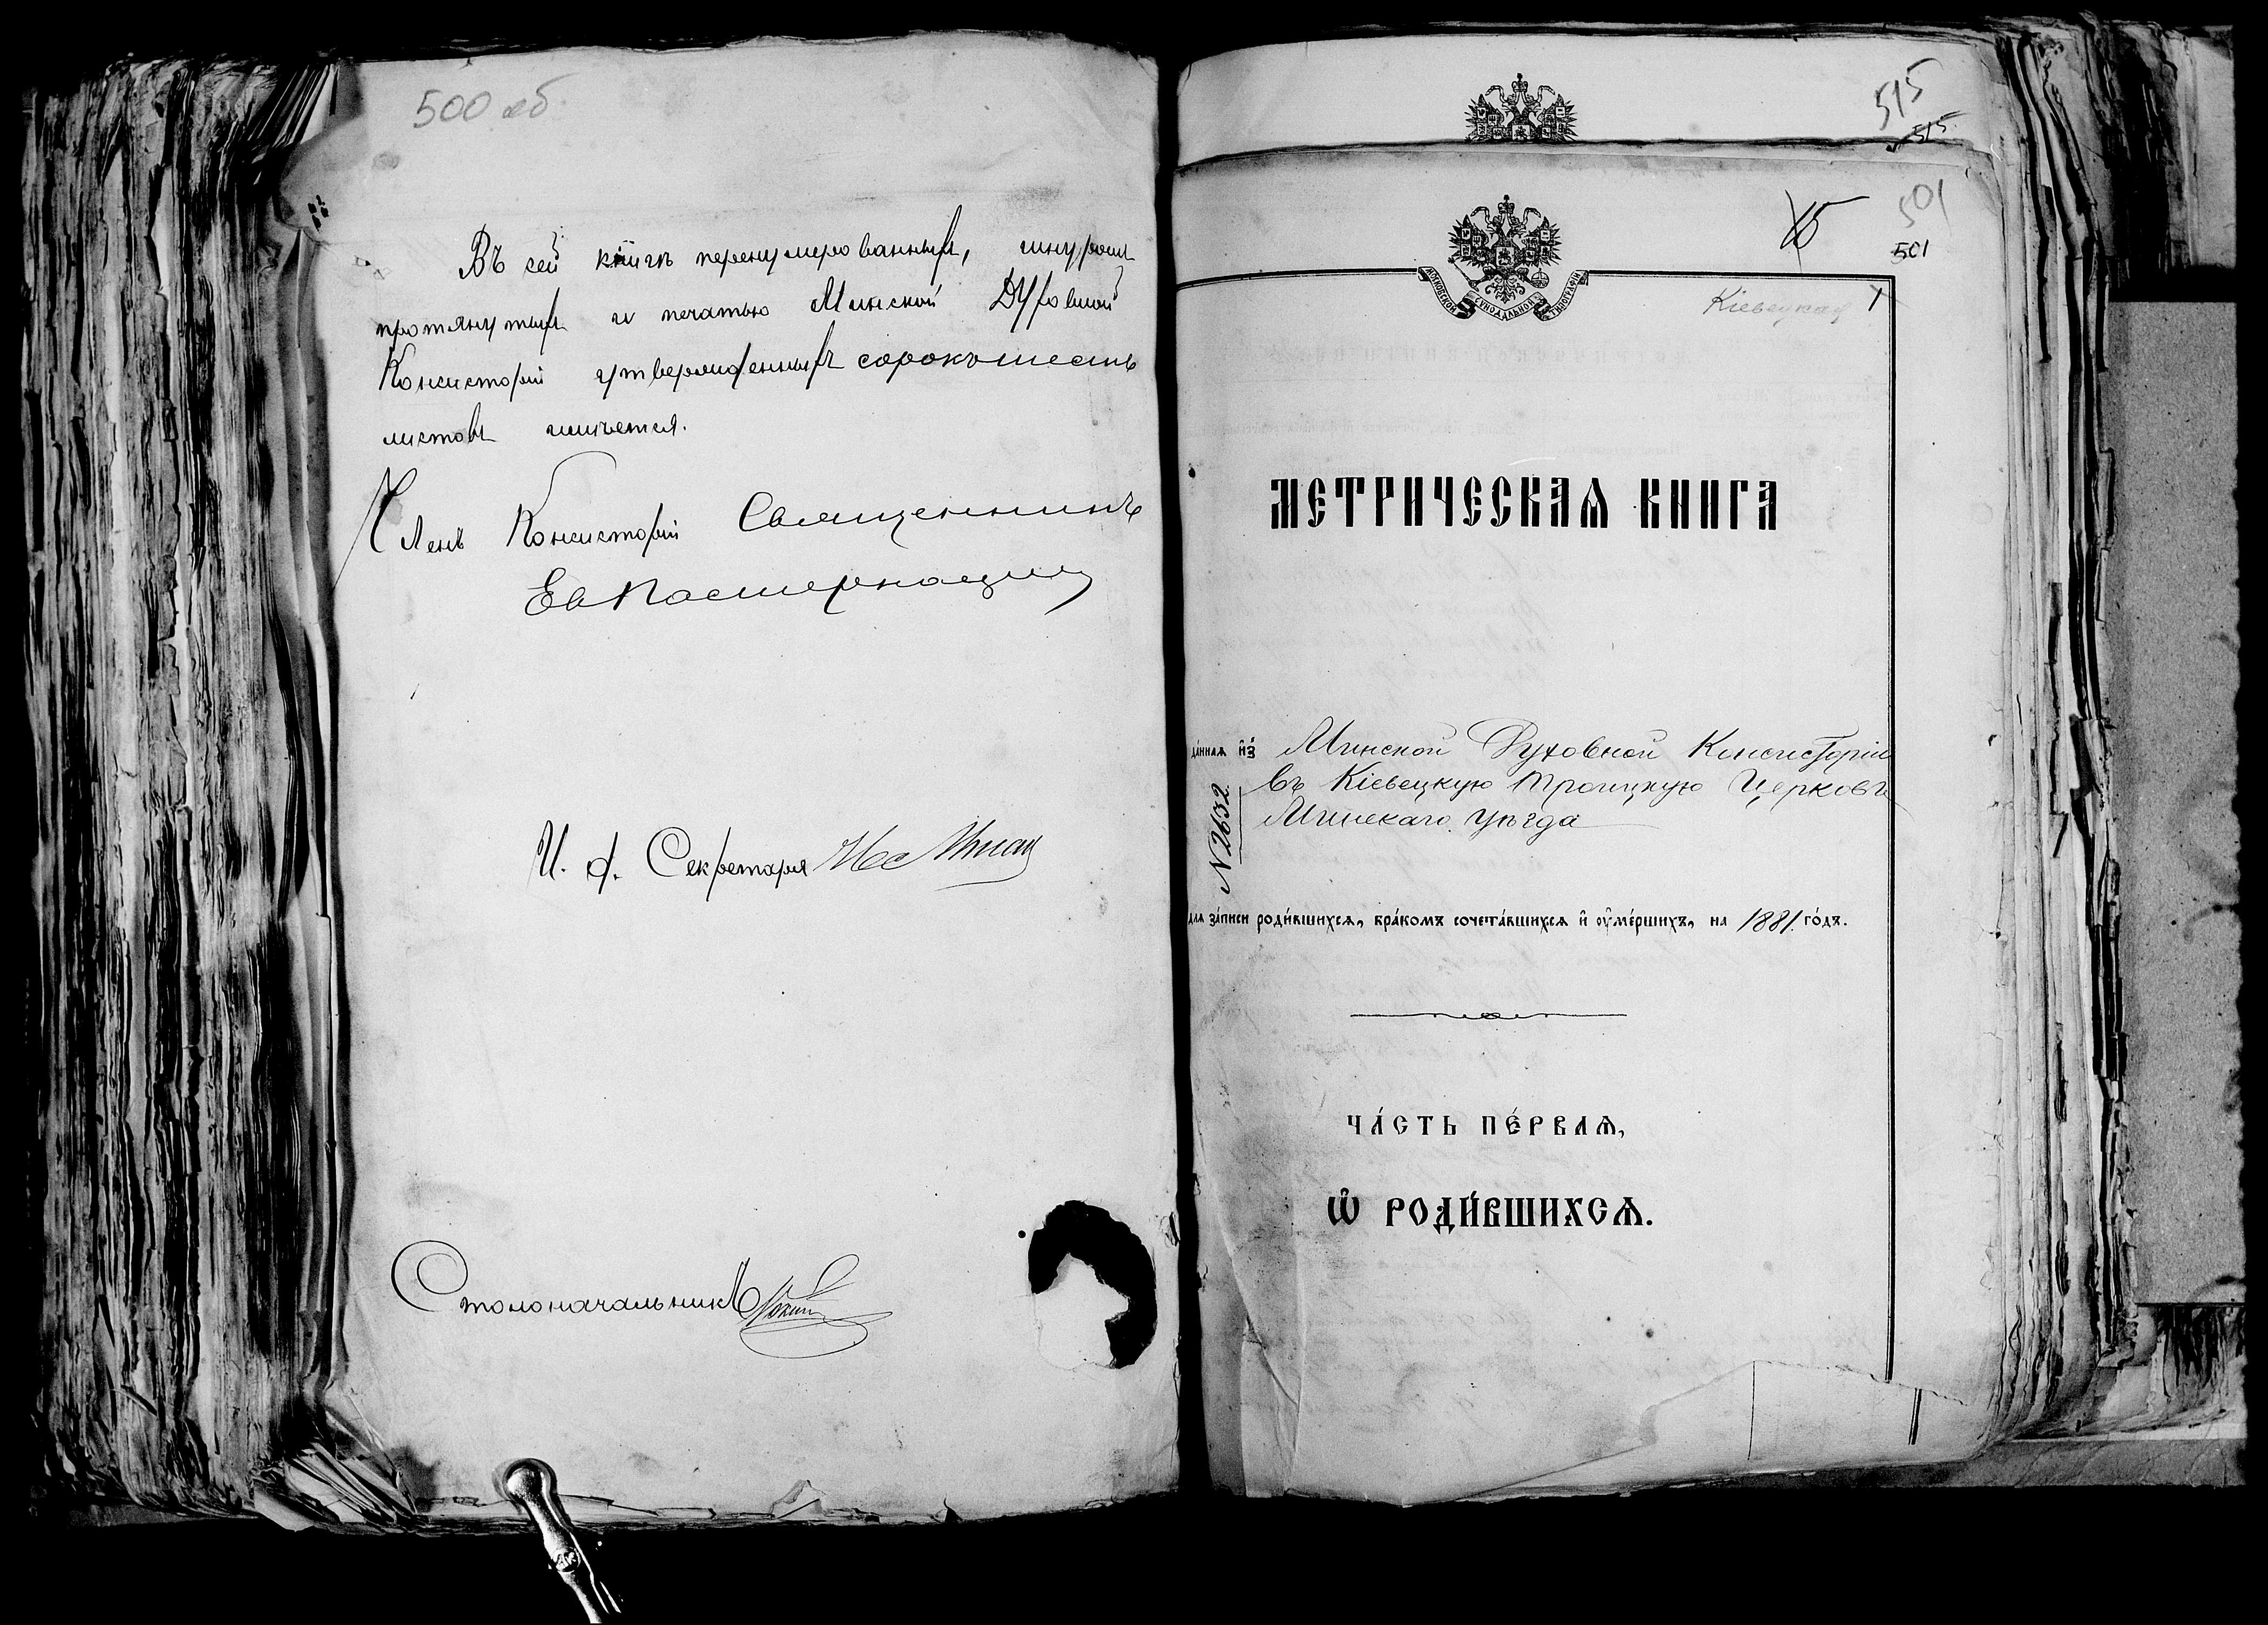 500 об
Въ сей книгѣ перенумерованныхъ, шнуромъ
протянутыхъ и печатью Минской Духовной
Консисторіи утвержденныхъ сорокъ шесть
листовъ имѣется.
Членъ Консисторіи Священникъ
И. д. Секретаря
Столоначальникъ
515
515
15
501
501
МОСКОВСКОЙ СѴНОДАЛЬНОЙ ТИПОГРАФІИ
Кіевецкая 1
МЕТРИЧЕСКАѦ КНИГА
да́ннаѧ и҆з̾ Минской Духовной Консисторіи
въ Кіевецкую Троицкую Церковь
Минскаго уѣзда
N 2632
длѧ за́писи роди́вшихсѧ, бра́комъ сочета́вшихсѧ и҆ ѹ҆ме́ршихъ, на 1881 го́дъ.
ЧА́СТЬ ПЕ́РВАѦ,
Ѽ РОДИ́ВШИХСѦ.